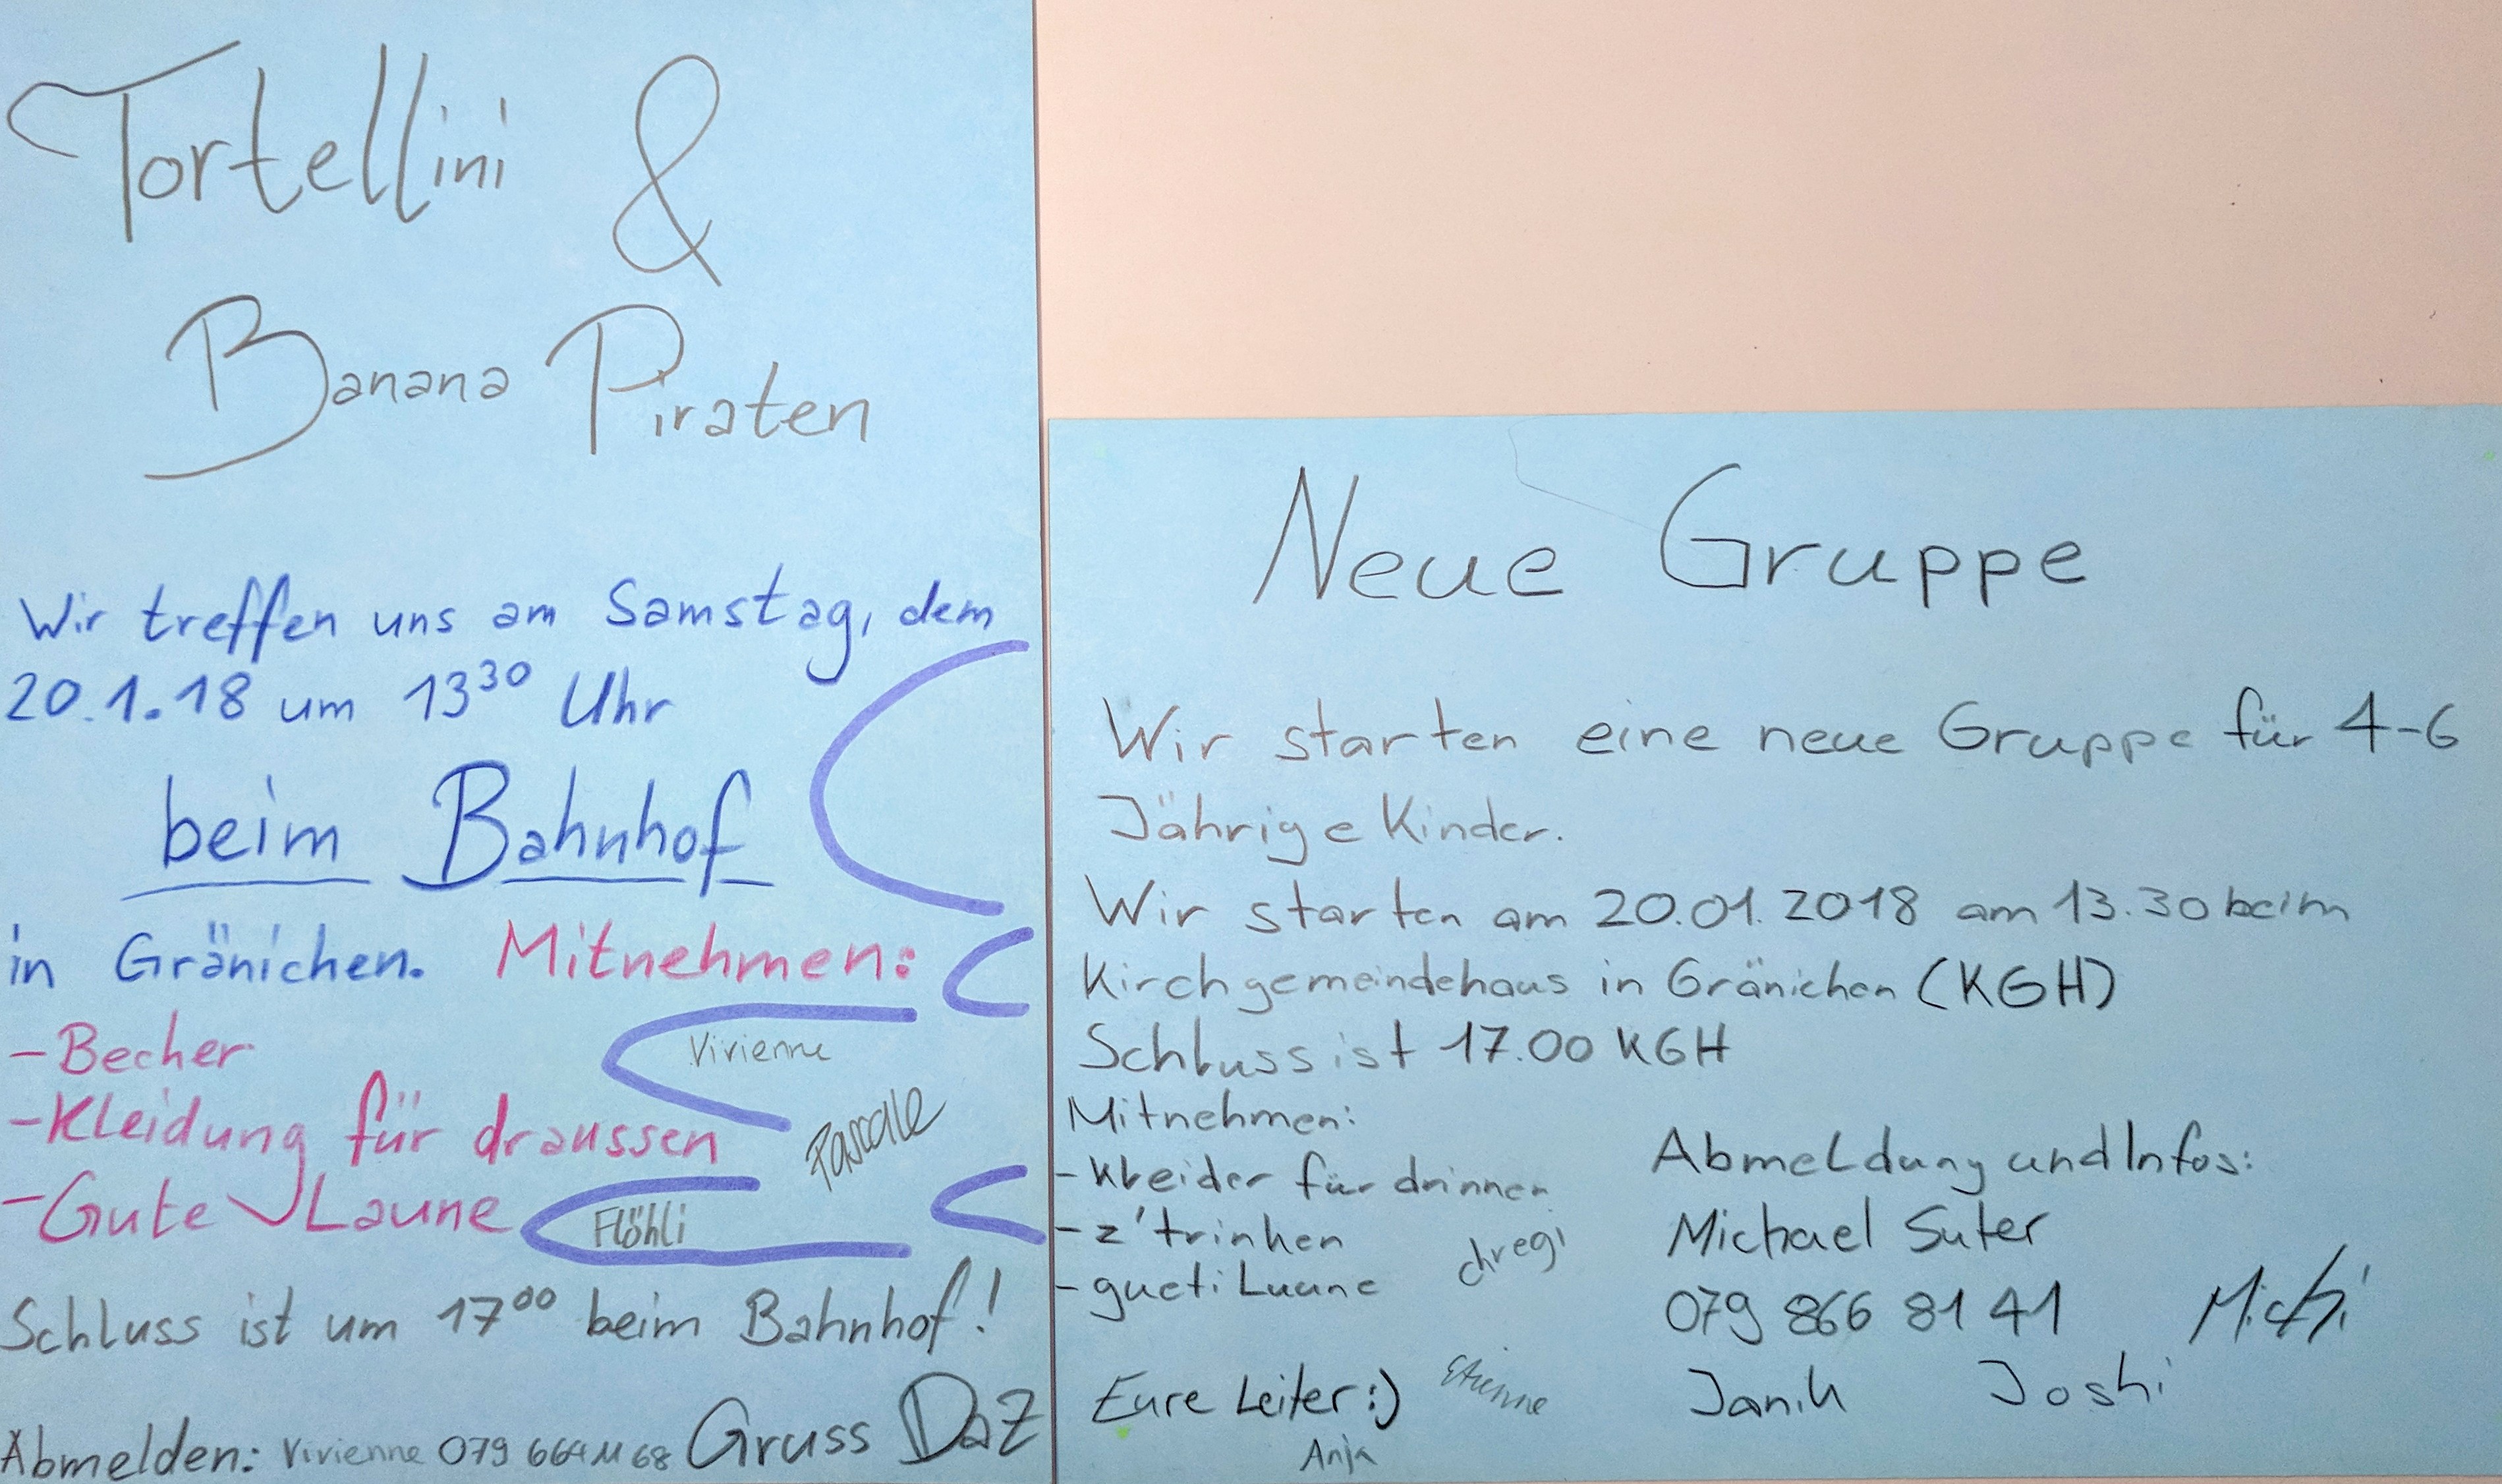 Tortellini &
Banana Piraten
Wir treffen uns am Samstag, dem
20.1.18 um 13³⁰ Uhr
beim Bahnhof
in Gränichen. Mitnehmen:
- Becher
- Kleidung für draussen
- Gute Laune
Vivienne
Pascale
Flöhli
Schluss ist um 17⁰⁰ beim Bahnhof!
Abmelden: Vivienne 079 664 11 68 Gruss DaZ
Neue Gruppe
Wir starten eine neue Gruppe für 4-6
Jährige Kinder.
Wir starten am 20.01.2018 am 13.30 beim
Kirchgemeindehaus in Gränichen (KGH)
Schluss ist 17.00 KGH
Mitnehmen:
- Kleider für drinnen
- z'trinken
- gueti Luune
chregi
Abmeldung und Infos:
Michael Suter
079 866 81 41
Michi
Janik Joshi
Eure Leiter :)
Etienne
Anja